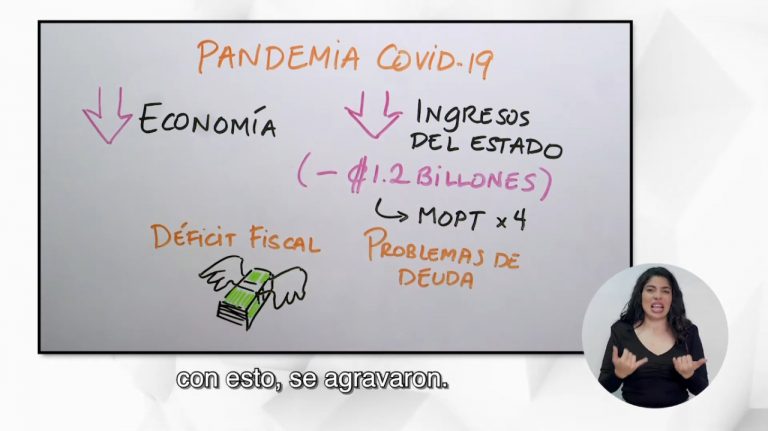 PANDEMIA COVID-19
ECONOMÍA
INGRESOS
DEL ESTADO
(- ₡1.2 BILLONES)
MOPT x 4
DÉFICIT FISCAL
PROBLEMAS DE
DEUDA
con esto, se agravaron.